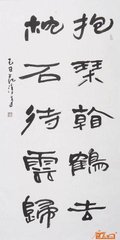 抱琴翰鶴去
枕石待雲歸